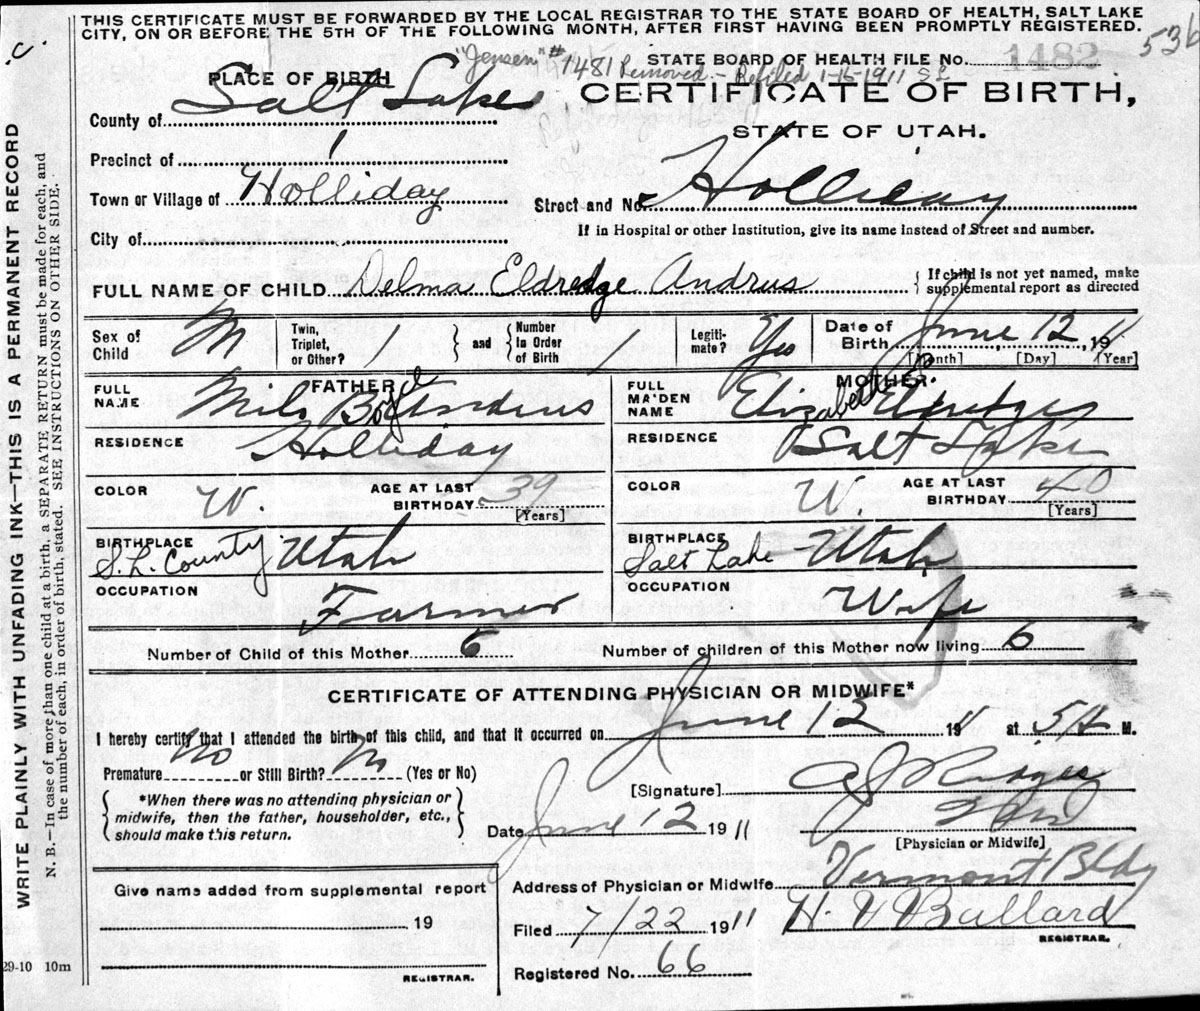 THIS CERTIFICATE MUST BE FORWARDED BY THE LOCAL REGISTRAR TO THE STATE BOARD OF HEALTH, SALT LAKE
CITY, ON OR BEFORE THE 5TH OF THE FOLLOWING MONTH, AFTER FIRST HAVING BEEN PROMPTLY REGISTERED.
536
C.
"Jensen" # 1481 Removed - Refiled 1-16-1911
STATE BOARD OF HEALTH FILE No. 1482
PLACE OF BIRTH
CERTIFICATE OF BIRTH,
STATE OF UTAH.
County of Salt Lake
Precinct of 1
Town or Village of Holliday
Street and No. Holliday
City of
If in Hospital or other Institution, give its name instead of Street and number.
FULL NAME OF CHILD Delma Eldredge Andrus { If child is not yet named, make supplemental report as directed
Sex of Child M Twin, Triplet, or Other? 1 } and { Number in Order of Birth Legitimate? Yes Date of Birth June 12, 1911
[Month] [Day] [Year]
FATHER
FULL NAME Milo Boyd Andrus
RESIDENCE Holliday
COLOR W. AGE AT LAST BIRTHDAY 39 [Years]
BIRTHPLACE S.L. County Utah
OCCUPATION Farmer
MOTHER.
FULL MAIDEN NAME Elizabeth Eldredge
RESIDENCE Salt Lake
COLOR W. AGE AT LAST BIRTHDAY 40 [Years]
BIRTHPLACE Salt Lake Utah
OCCUPATION Wife
Number of Child of this Mother 6 Number of children of this Mother now living 6
CERTIFICATE OF ATTENDING PHYSICIAN OR MIDWIFE*
I hereby certify that I attended the birth of this child, and that it occurred on June 12 1911 at 5 A M.
Premature No or Still Birth? No (Yes or No)
{ *When there was no attending physician or midwife, then the father, householder, etc., should make this return. }
[Signature]
Date June 12 1911
[Physician or Midwife]
Address of Physician or Midwife Vermont Bldg
Give name added from supplemental report
19
REGISTRAR.
Filed 7/22 1911 H. V Bullard
REGISTRAR.
Registered No. 66
29-10 10m
WRITE PLAINLY WITH UNFADING INK—THIS IS A PERMANENT RECORD
N. B.—In case of more than one child at a birth, a SEPARATE RETURN must be made for each, and
the number of each, in order of birth, stated. SEE INSTRUCTIONS ON OTHER SIDE.